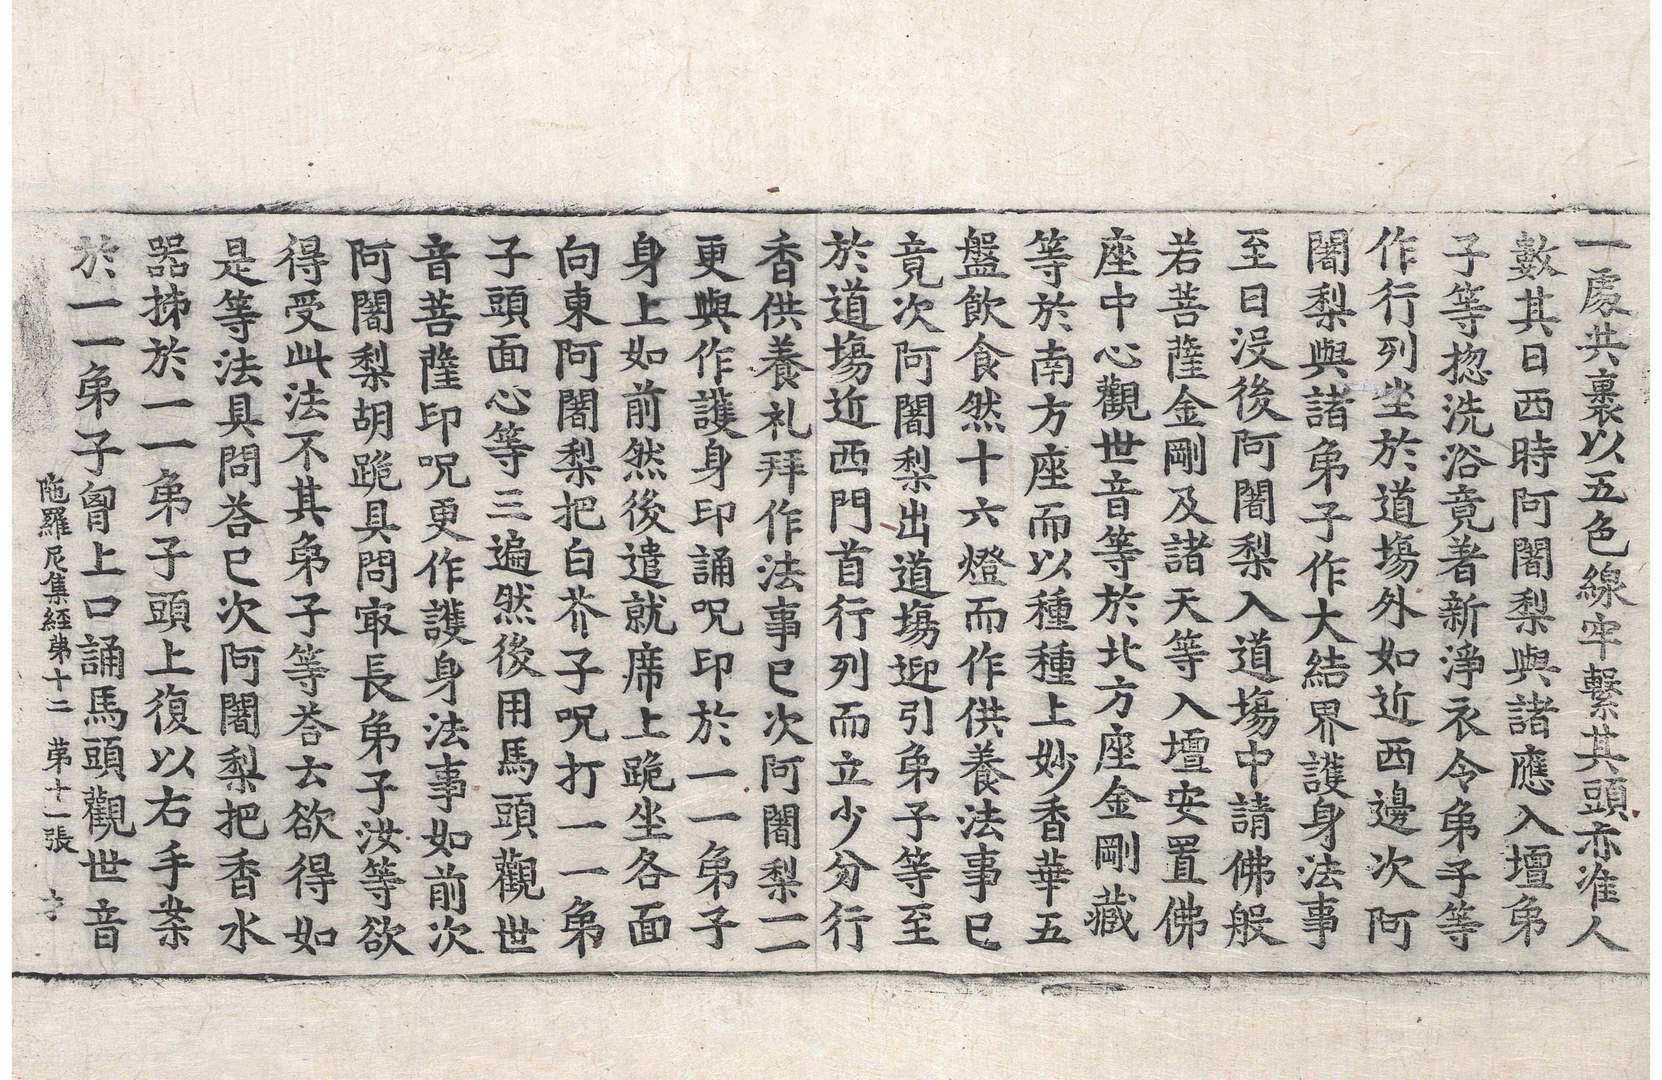 一處共裹以五色線牢繫其頭亦准人
數其日西時阿闍梨與諸應入壇弟
子等揔洗浴竟著新淨衣令弟子等
作行列坐於道場外如近西邊次阿
闍梨與諸弟子作大結界護身法事
至日没後阿闍梨入道場中請佛般
若菩薩金剛及諸天等入壇安置佛
座中心觀世音等於北方座金剛藏
等於南方座而以種種上妙香華五
盤飲食然十六燈而作供養法事已
竟次阿闍梨出道場迎引弟子等至
於道場近西門首行列而立少分行
香供養礼拜作法事已次阿闍梨一一
更與作護身印誦呪印於一一弟子
身上如前然後遣就席上跪坐各面
向東阿闍梨把白芥子呪打一一弟
子頭面心等三遍然後用馬頭觀世
音菩薩印呪更作護身法事如前次
阿闍梨胡跪具問㝡長弟子汝等欲
得受此法不其弟子等荅云欲得如
是等法具問荅已次阿闍梨把香水
器拂於一一弟子頭上復以右手桒
於一一弟子胷上口誦馬頭觀世音
陁羅尼集経苐十二 苐十一張